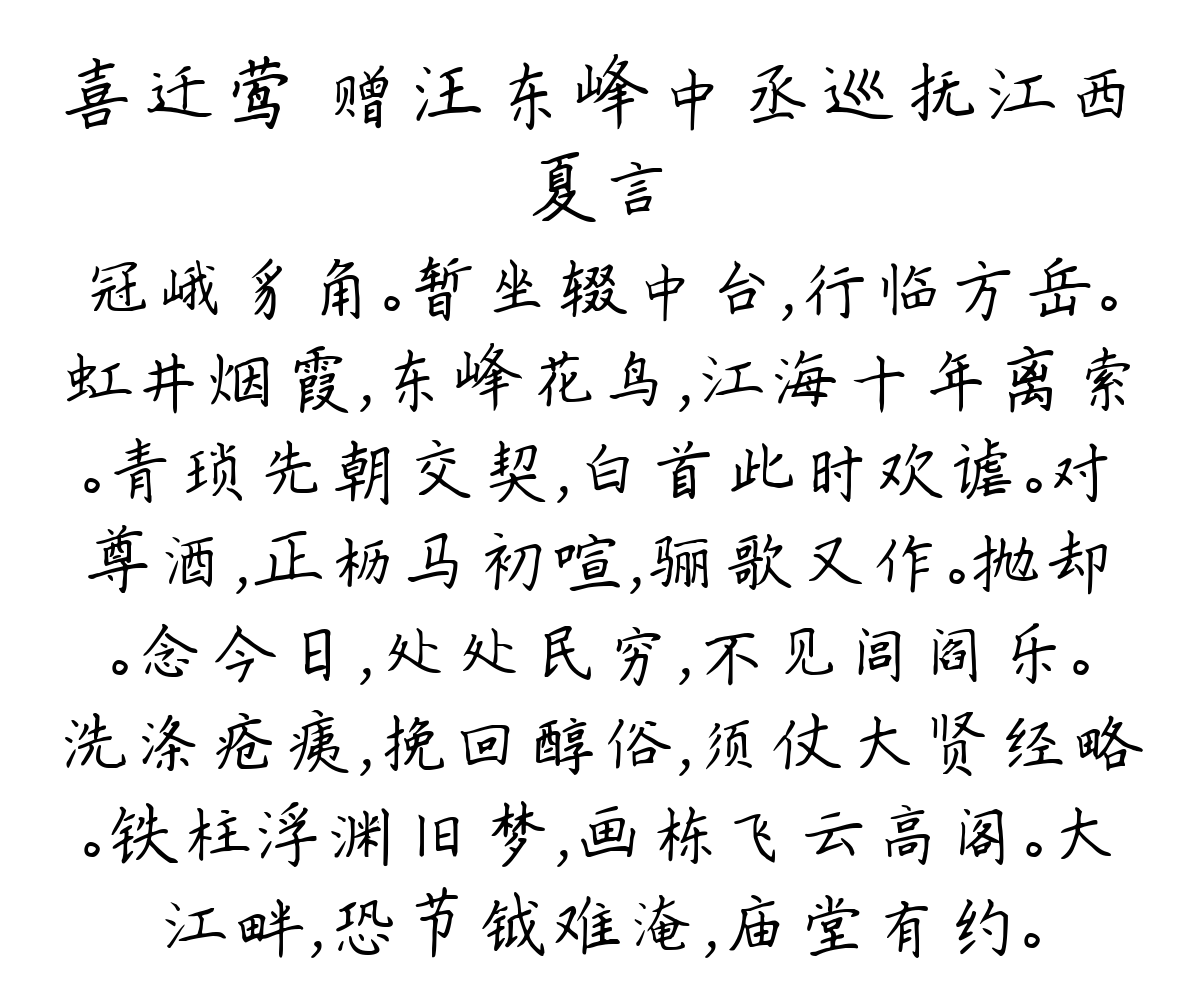 喜迁莺 赠汪东峰中丞巡抚江西
夏言
冠峨豸角。暂坐辍中台,行临方岳。
虹井烟霞,东峰花鸟,江海十年离索
。青琐先朝交契,白首此时欢谑。对
尊酒,正枥马初喧,骊歌又作。抛却
。念今日,处处民穷,不见闾阎乐。
洗涤疮痍,挽回醇俗,须仗大贤经略
。铁柱浮渊旧梦,画栋飞云高阁。大
江畔,恐节钺难淹,庙堂有约。